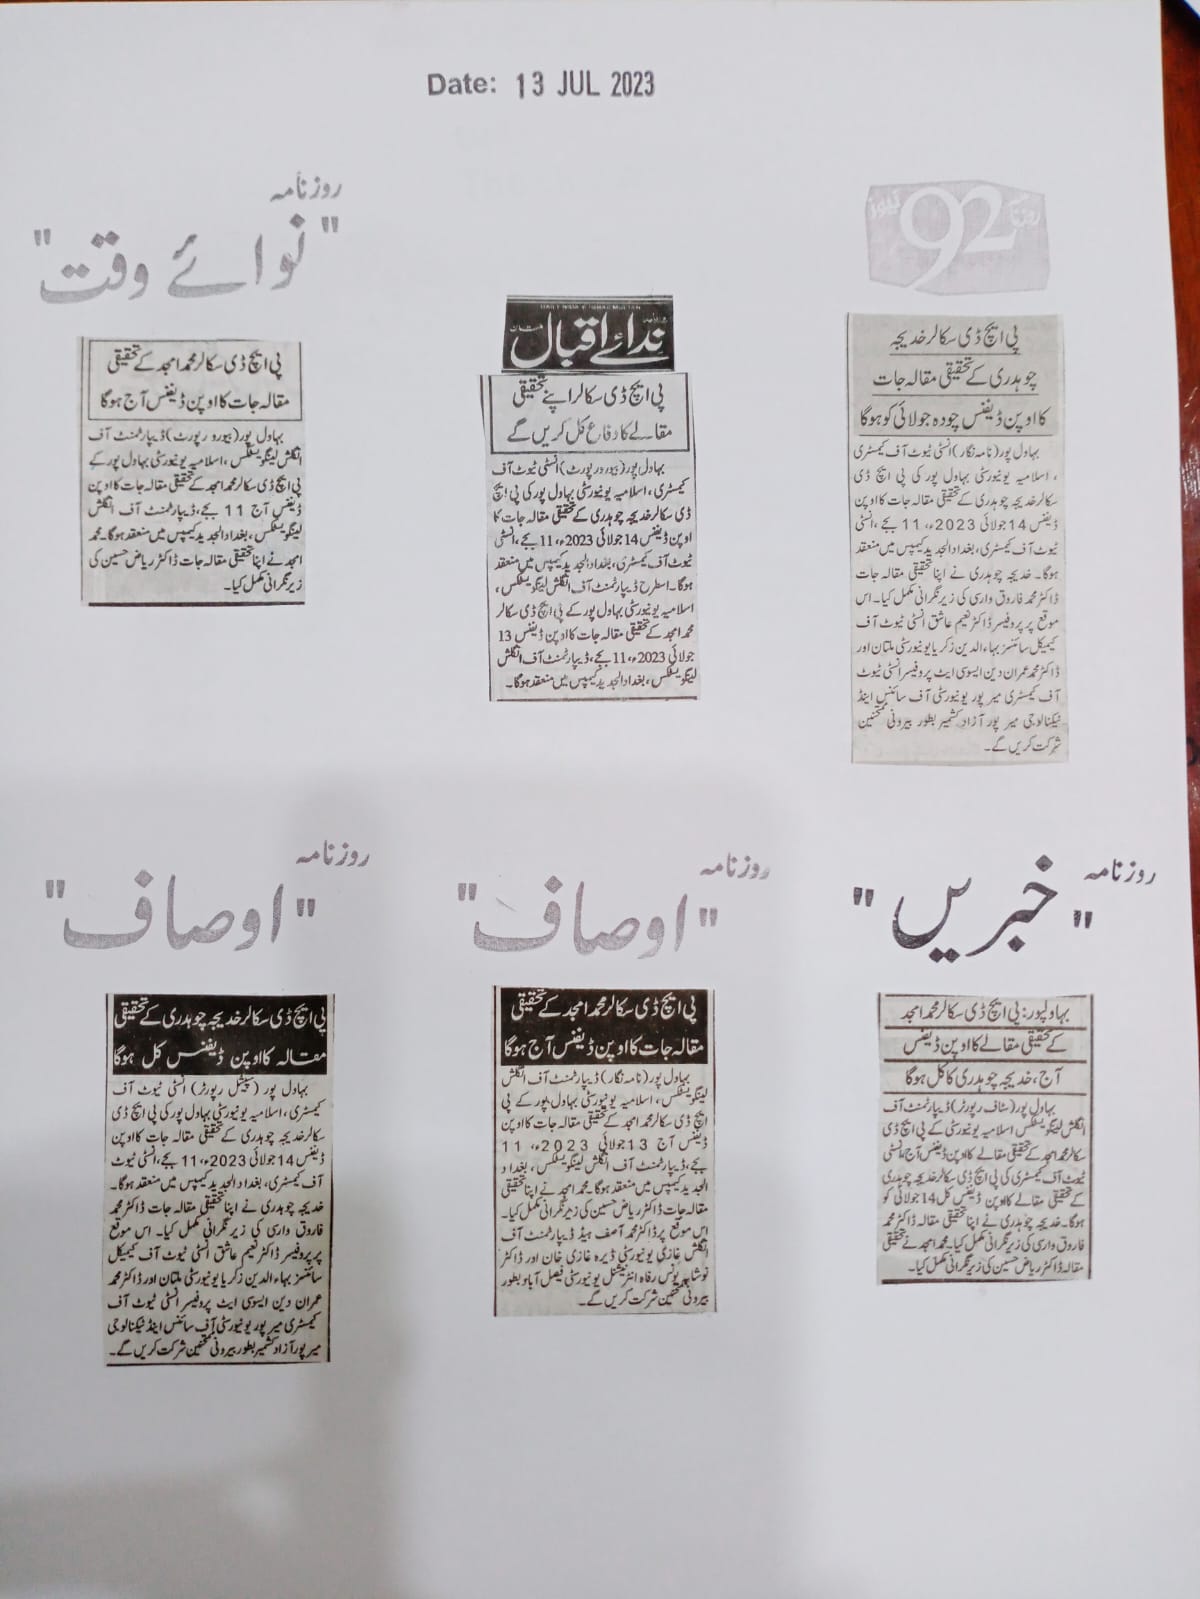 Date: 13 JUL 2023
روزنامہ
"نوائے وقت"
پی ایچ ڈی سکالر محمد امجد کے تحقیقی
مقالہ جات کا اوپن ڈیفنس آج ہوگا
بہاول پور (بیورو رپورٹ) ڈیپارٹمنٹ آف
انگلش لینگویسٹکس، اسلامیہ یونیورسٹی بہاول پور کے
پی ایچ ڈی سکالر محمد امجد کے تحقیقی مقالہ جات کا اوپن
ڈیفنس آج 11 بجے، ڈیپارٹمنٹ آف انگلش
لینگویسٹکس، بغداد الجدید کیمپس میں منعقد ہوگا۔ محمد
امجد نے اپنا تحقیقی مقالہ جات ڈاکٹر ریاض حسین کی
زیر نگرانی مکمل کیا۔
روزنامہ
ندائے اقبال
ملتان
پی ایچ ڈی سکالر اپنے تحقیقی
مقالے کا دفاع کل کریں گے
بہاول پور (بیورو رپورٹ) انسٹی ٹیوٹ آف
کیمسٹری، اسلامیہ یونیورسٹی بہاول پور کی پی ایچ
ڈی سکالر خدیجہ چوہدری کے تحقیقی مقالہ جات کا
اوپن ڈیفنس 14 جولائی 2023ء، 11 بجے، انسٹی
ٹیوٹ آف کیمسٹری، بغداد الجدید کیمپس میں منعقد
ہوگا۔ اسطرح ڈیپارٹمنٹ آف انگلش لینگویسٹکس،
اسلامیہ یونیورسٹی بہاول پور کے پی ایچ ڈی سکالر
محمد امجد کے تحقیقی مقالہ جات کا اوپن ڈیفنس 13
جولائی 2023ء، 11 بجے، ڈیپارٹمنٹ آف انگلش
لینگویسٹکس، بغداد الجدید کیمپس میں منعقد ہوگا۔
روزنامہ 92 نیوز
پی ایچ ڈی سکالر خدیجہ
چوہدری کے تحقیقی مقالہ جات
کا اوپن ڈیفنس چودہ جولائی کو ہوگا
بہاول پور (نامہ نگار) انسٹی ٹیوٹ آف کیمسٹری
، اسلامیہ یونیورسٹی بہاول پور کی پی ایچ ڈی
سکالر خدیجہ چوہدری کے تحقیقی مقالہ جات کا اوپن
ڈیفنس 14 جولائی 2023ء، 11 بجے، انسٹی
ٹیوٹ آف کیمسٹری، بغداد الجدید کیمپس میں منعقد
ہوگا۔ خدیجہ چوہدری نے اپنا تحقیقی مقالہ جات
ڈاکٹر محمد فاروق وارثی کی زیر نگرانی مکمل کیا۔ اس
موقع پر پروفیسر ڈاکٹر نعیم عاشق انسٹی ٹیوٹ آف
کیمیکل سائنسز بہاء الدین زکریا یونیورسٹی ملتان اور
ڈاکٹر محمد عمران دین ایسوسی ایٹ پروفیسر انسٹی ٹیوٹ
آف کیمسٹری میر پور یونیورسٹی آف سائنس اینڈ
ٹیکنالوجی میر پور آزاد کشمیر بطور بیرونی ممتحنین
شرکت کریں گے۔
روزنامہ
"اوصاف"
پی ایچ ڈی سکالر خدیجہ چوہدری کے تحقیقی
مقالہ کا اوپن ڈیفنس کل ہوگا
بہاول پور (سپیشل رپورٹر) انسٹی ٹیوٹ آف
کیمسٹری، اسلامیہ یونیورسٹی بہاول پور کی پی ایچ ڈی
سکالر خدیجہ چوہدری کے تحقیقی مقالہ جات کا اوپن
ڈیفنس 14 جولائی 2023ء، 11 بجے، انسٹی ٹیوٹ
آف کیمسٹری، بغداد الجدید کیمپس میں منعقد ہوگا۔
خدیجہ چوہدری نے اپنا تحقیقی مقالہ جات ڈاکٹر محمد
فاروق وارثی کی زیر نگرانی مکمل کیا۔ اس موقع
پر پروفیسر ڈاکٹر نعیم عاشق انسٹی ٹیوٹ آف کیمیکل
سائنسز بہاء الدین زکریا یونیورسٹی ملتان اور ڈاکٹر محمد
عمران دین ایسوسی ایٹ پروفیسر انسٹی ٹیوٹ آف
کیمسٹری میر پور یونیورسٹی آف سائنس اینڈ ٹیکنالوجی
میر پور آزاد کشمیر بطور بیرونی ممتحنین شرکت کریں گے۔
روزنامہ
"اوصاف"
پی ایچ ڈی سکالر محمد امجد کے تحقیقی
مقالہ جات کا اوپن ڈیفنس آج ہوگا
بہاول پور (نامہ نگار) ڈیپارٹمنٹ آف انگلش
لینگویسٹکس، اسلامیہ یونیورسٹی بہاول پور کے پی
ایچ ڈی سکالر محمد امجد کے تحقیقی مقالہ جات کا اوپن
ڈیفنس آج 13 جولائی 2023ء، 11
بجے، ڈیپارٹمنٹ آف انگلش لینگویسٹکس، بغداد
الجدید کیمپس میں منعقد ہوگا۔ محمد امجد نے اپنا تحقیقی
مقالہ جات ڈاکٹر ریاض حسین کی زیر نگرانی مکمل کیا۔
اس موقع پر ڈاکٹر محمد آصف ہیڈ ڈیپارٹمنٹ آف
انگلش غازی یونیورسٹی ڈیرہ غازی خان اور ڈاکٹر
نوشابہ یونس رفاہ انٹرنیشنل یونیورسٹی فیصل آباد بطور
بیرونی ممتحنین شرکت کریں گے۔
روزنامہ
"خبریں"
بہاولپور: پی ایچ ڈی سکالر محمد امجد
کے تحقیقی مقالے کا اوپن ڈیفنس
آج، خدیجہ چوہدری کا کل ہوگا
بہاول پور (سٹاف رپورٹر) ڈیپارٹمنٹ آف
انگلش لینگویسٹکس اسلامیہ یونیورسٹی کے پی ایچ ڈی
سکالر محمد امجد کے تحقیقی مقالے کا اوپن ڈیفنس آج، انسٹی
ٹیوٹ آف کیمسٹری کی پی ایچ ڈی سکالر خدیجہ چوہدری
کے تحقیقی مقالے کا اوپن ڈیفنس کل 14 جولائی کو
ہوگا۔ خدیجہ چوہدری نے اپنا تحقیقی مقالہ ڈاکٹر محمد
فاروق وارثی کی زیر نگرانی مکمل کیا۔ محمد امجد نے تحقیقی
مقالہ ڈاکٹر ریاض حسین کی زیر نگرانی مکمل کیا۔